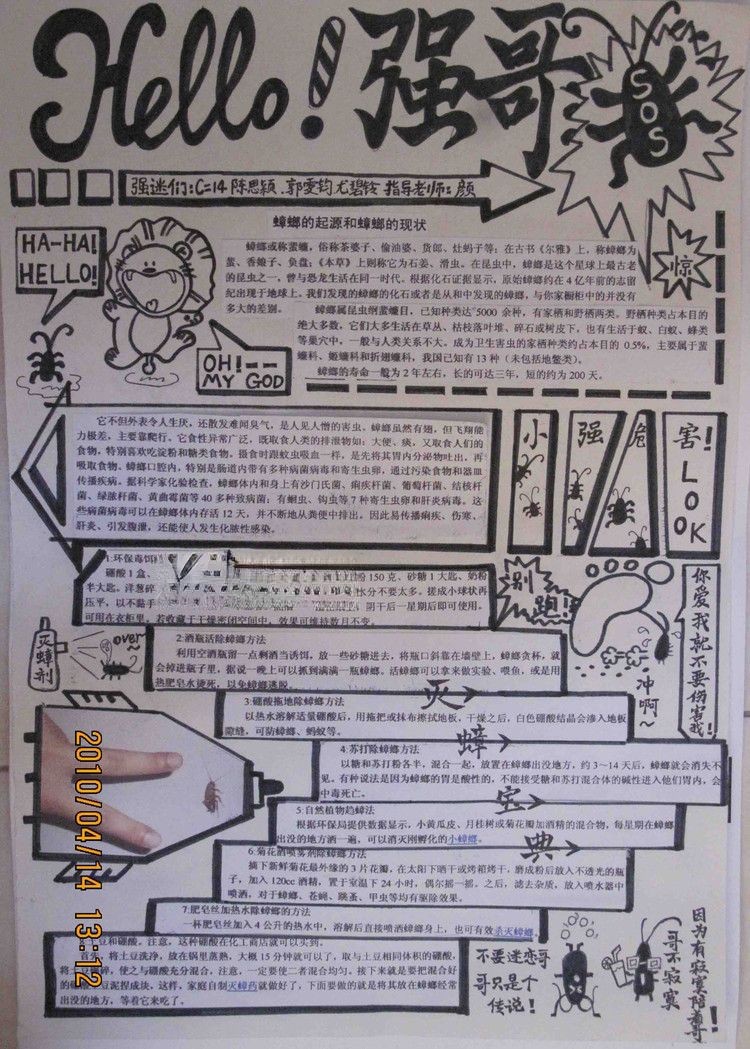 Hello!强哥
SOS
强迷们:C=14 陈思颖.郭雯钧 尤碧铃 指导老师:颜
蟑螂的起源和蟑螂的现状
HA-HA!
HELLO!
惊
蟑螂或称蜚蠊，俗称茶婆子、偷油婆、货郎、灶蚂子等；在古书《尔雅》上，称蟑螂为
蜚、香娘子、负盘；《本草》上则称它为石姜、滑虫。在昆虫中，蟑螂是这个星球上最古老
的昆虫之一，曾与恐龙生活在同一时代。根据化石证据显示，原始蟑螂约在4亿年前的志留
纪出现于地球上。我们发现的蟑螂的化石或者是从和中发现的蟑螂，与你家橱柜中的并没有
多大的差别。
蟑螂属昆虫纲蜚蠊目，已知种类达5000余种，有家栖和野栖两类。野栖种类占本目的
绝大多数，它们大多生活在草丛、枯枝落叶堆、碎石或树皮下，也有生活于蚁、白蚁、蜂类
等巢穴中，一般与人类关系不大。成为卫生害虫的家栖种类约占本目的0.5%，主要属于蜚
蠊科、姬蠊科和折翅蠊科，我国已知有13种（未包括地鳖类）。
蟑螂的寿命一般为2年左右，长的可达三年，短的约为200天。
OH!--
MY GOD
它不但外表令人生厌，还散发难闻臭气，是人见人憎的害虫。蟑螂虽然有翅，但飞翔能
力极差，主要靠爬行。它食性异常广泛，既取食人类的排泄物如：大便、痰，又取食人们的
食物，特别喜欢吃淀粉和糖类食物。摄食时跟蚊虫吸血一样，是先将其胃内分泌物吐出，再
吸取食物。蟑螂口腔内，特别是肠道内带有多种病菌病毒和寄生虫卵，通过污染食物和器皿
传播疾病。据科学家化验检查，蟑螂体内和身上有沙门氏菌、痢疾杆菌、葡萄杆菌、结核杆
菌、绿脓杆菌、黄曲霉菌等40多种致病菌；有蛔虫、钩虫等7种寄生虫卵和肝炎病毒。这
些病菌病毒可以在蟑螂体内存活12天，并不断地从粪便中排出。因此易传播痢疾、伤寒、
肝炎、引发腹泄，还能使人发生化脓性感染。
小强危害!
LOOK
1:环保毒饵
硼酸1盒、
粉150克、砂糖1大匙、奶粉
半大匙。洋葱碎
水分不要太多。搓成小球状再
压平，以不黏手
阴干后一星期后即可使用。
可用在衣柜里，若收藏于干燥密闭空间中，效果可维持数月不变。
别跑!
你爱我就不要伤害我!
冲啊~
灭蟑剂
over~
2:酒瓶活除蟑螂方法
利用空酒瓶留一点剩酒当诱饵，放一些砂糖进去，将瓶口斜靠在墙壁上，蟑螂贪杯，就
会掉进瓶子里，据说一晚上可以抓到满满一瓶蟑螂。活蟑螂可以拿来做实验、喂鱼，或是用
热肥皂水烫死，以免蟑螂逃脱。
灭蟑宝典
3:硼酸拖地除蟑螂方法
以热水溶解适量硼酸后，用拖把或抹布擦拭地板，干燥之后，白色硼酸结晶会渗入地板
隙缝，可防蟑螂、蚂蚁等。
4:苏打除蟑螂方法
以糖和苏打粉各半，混合一起，放置在蟑螂出没地方，约3～14天后，蟑螂就会消失不
见。有种说法是因为蟑螂的胃是酸性的，不能接受糖和苏打混合体的碱性进入他们胃内，会
中毒死亡。
5:自然植物趋蟑法
根据环保局提供数据显示，小黄瓜皮、月桂树或菊花瓣加酒精的混合物，每星期在蟑螂
出没的地方洒一遍，可以消灭刚孵化的小蟑螂。
6:菊花酒喷雾剂除蟑螂方法
摘下新鲜菊花最外缘的3片花瓣，在太阳下晒干或烤箱烤干，磨成粉后放入不透光的瓶
子，加入120cc酒精，置于室温下24小时，偶尔摇一摇。之后，滤去杂质，放入喷水器中
喷洒，对于蟑螂、苍蝇、跳蚤、甲虫等均有驱除效果。
7:肥皂丝加热水除蟑螂的方法
一杯肥皂丝加入4公升的热水中，溶解后直接喷洒蟑螂身上，也可有效杀灭蟑螂。
土豆和硼酸。注意，这种硼酸在化工商店就可以买到。
首先，将土豆洗净，放在锅里蒸熟，大概15分钟就可以了，取与土豆相同体积的硼酸，
将土豆捣碎，使之与硼酸充分混合，注意，一定要使二者混合均匀。接下来就是要把混合好
的硼酸土豆泥捏成块，这样，家庭自制灭蟑药就做好了，下面要做的就是将其放在蟑螂经常
出没的地方，等着它来吃了。
不要迷恋哥
哥只是个
传说!
哥不寂寞
因为有寂寞陪着哥!
2010/04/14 13:12